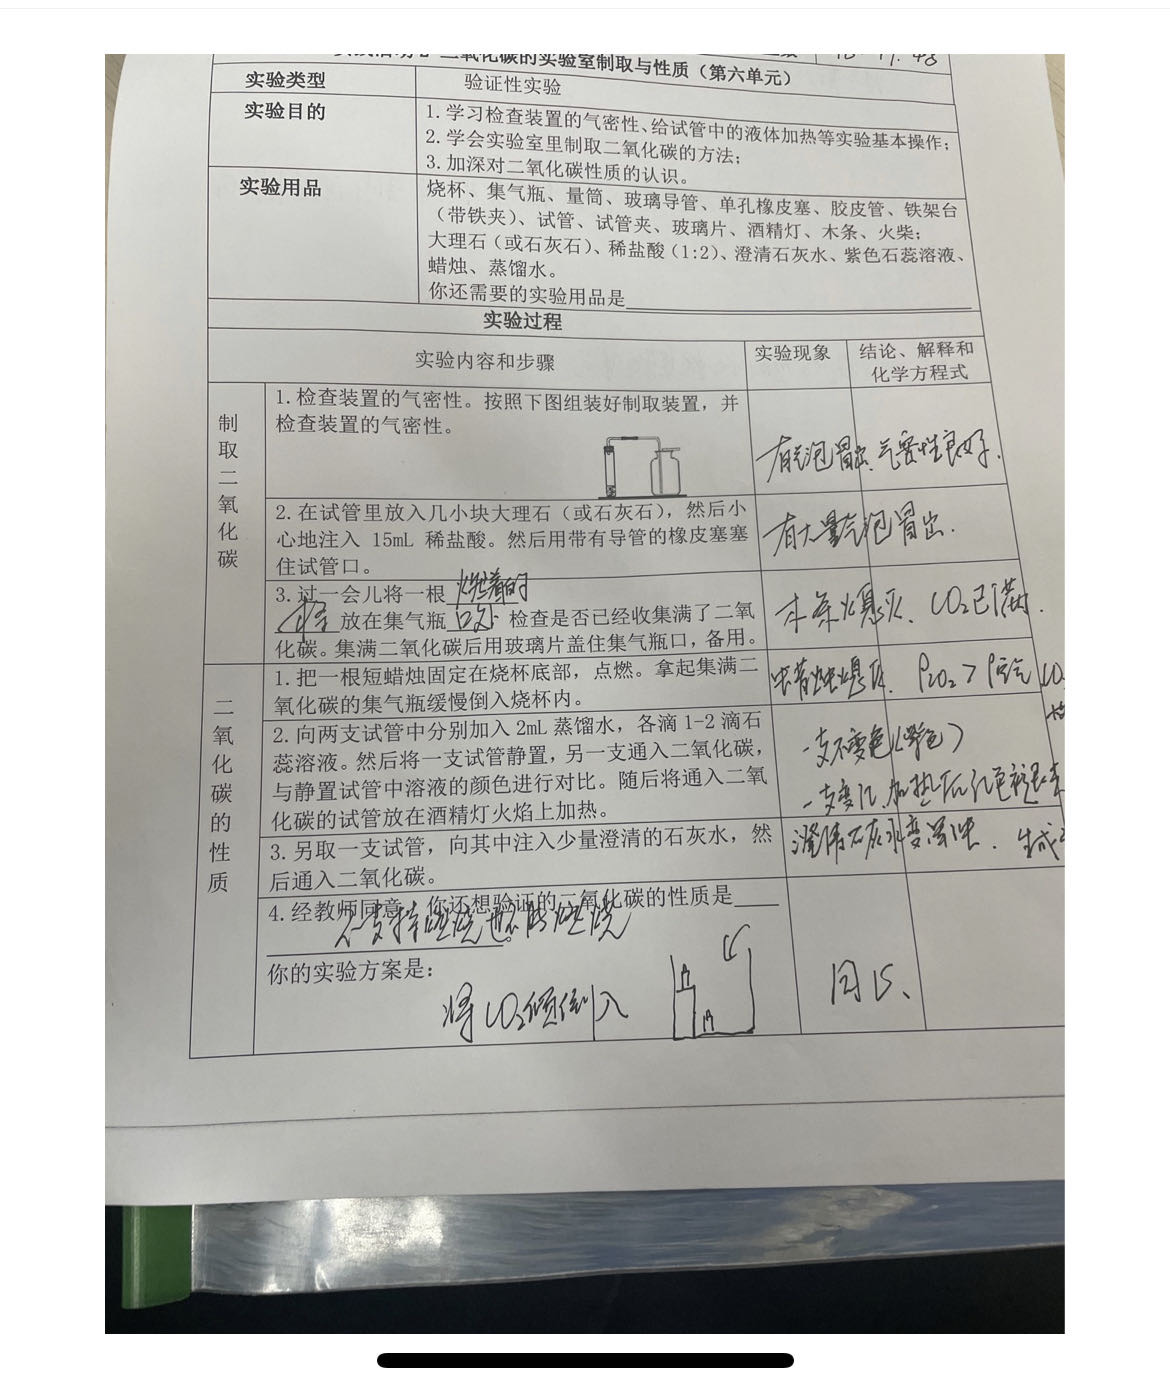 二氧化碳的实验室制取与性质（第六单元）
实验类型
验证性实验
实验目的
1.学习检查装置的气密性、给试管中的液体加热等实验基本操作；
2.学会实验室里制取二氧化碳的方法；
3.加深对二氧化碳性质的认识。
实验用品
烧杯、集气瓶、量筒、玻璃导管、单孔橡皮塞、胶皮管、铁架台
（带铁夹）、试管、试管夹、玻璃片、酒精灯、木条、火柴；
大理石（或石灰石）、稀盐酸（1:2）、澄清石灰水、紫色石蕊溶液、
蜡烛、蒸馏水。
你还需要的实验用品是
实验过程
实验内容和步骤
实验现象
结论、解释和
化学方程式
制取二氧化碳
1.检查装置的气密性。按照下图组装好制取装置，并
检查装置的气密性。
有气泡冒出、气密性良好.
2.在试管里放入几小块大理石（或石灰石），然后小
心地注入 15mL 稀盐酸。然后用带有导管的橡皮塞塞
住试管口。
有大量气泡冒出.
3.过一会儿将一根 燃着的
放在集气瓶 口处 检查是否已经收集满了二氧
化碳。集满二氧化碳后用玻璃片盖住集气瓶口，备用。
木条熄灭、CO₂已满.
二氧化碳的性质
1.把一根短蜡烛固定在烧杯底部，点燃。拿起集满二
氧化碳的集气瓶缓慢倒入烧杯内。
蜡烛熄灭.
2.向两支试管中分别加入 2mL 蒸馏水，各滴 1-2 滴石
蕊溶液。然后将一支试管静置，另一支通入二氧化碳，
与静置试管中溶液的颜色进行对比。随后将通入二氧
化碳的试管放在酒精灯火焰上加热。
一支不变色(紫色)
一支变红,加热后红色褪去
3.另取一支试管，向其中注入少量澄清的石灰水，然
后通入二氧化碳。
澄清石灰水变浑浊. 生成
4.经教师同意，你还想验证的二氧化碳的性质是
不支持燃烧也不能燃烧
你的实验方案是：
将CO₂倾倒入